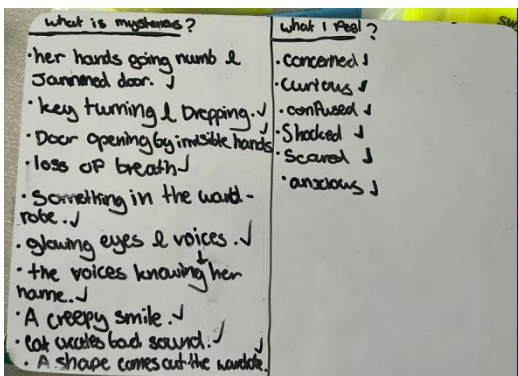 what is mysterious?
·her hands going numb &
Jammed door. ✓
·key turning & Dropping. ✓
·Door opening by invisible hands ✓
·loss of breath ✓
·Something in the ward-
robe. ✓
·glowing eyes & voices. ✓
·the voices knowing her
name. ✓
·A creepy smile. ✓
·cat creates bad sound. ✓
·A shape comes out the wardrobe. ✓
what I feel?
·concerned ✓
·curious ✓
·confused ✓
·Shocked ✓
·Scared ✓
·anxious ✓